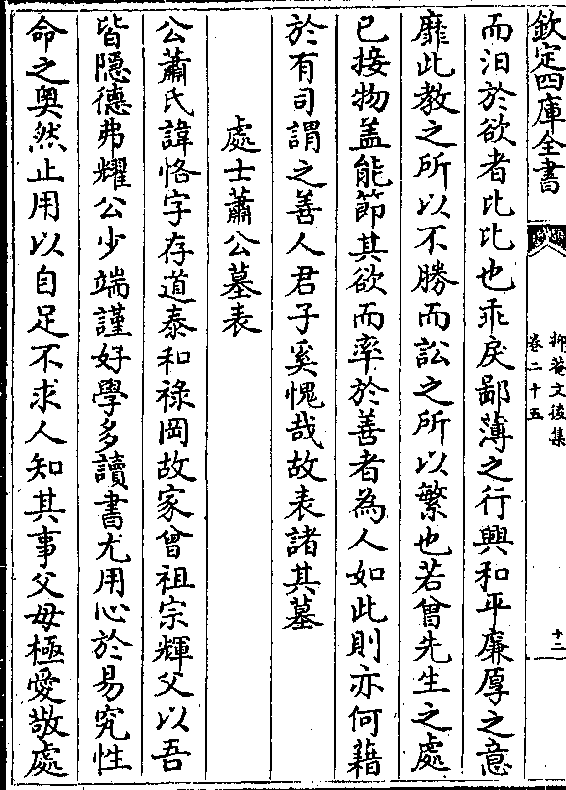 欽定四庫全書
抑菴文後集
卷二十五
十二
而汨於欲者比比也乖戾鄙薄之行興和平廉厚之意
靡此教之所以不勝而訟之所以繁也若曾先生之處
已接物盖能節其欲而率於善者為人如此則亦何藉
於有司謂之善人君子奚愧哉故表諸其墓
處士蕭公墓表
公蕭氏諱恪字存道泰和祿岡故家曾祖宗輝父以吾
皆隱德弗耀公少端謹好學多讀書尤用心於易究性
命之奥然止用以自足不求人知其事父母極愛敬處